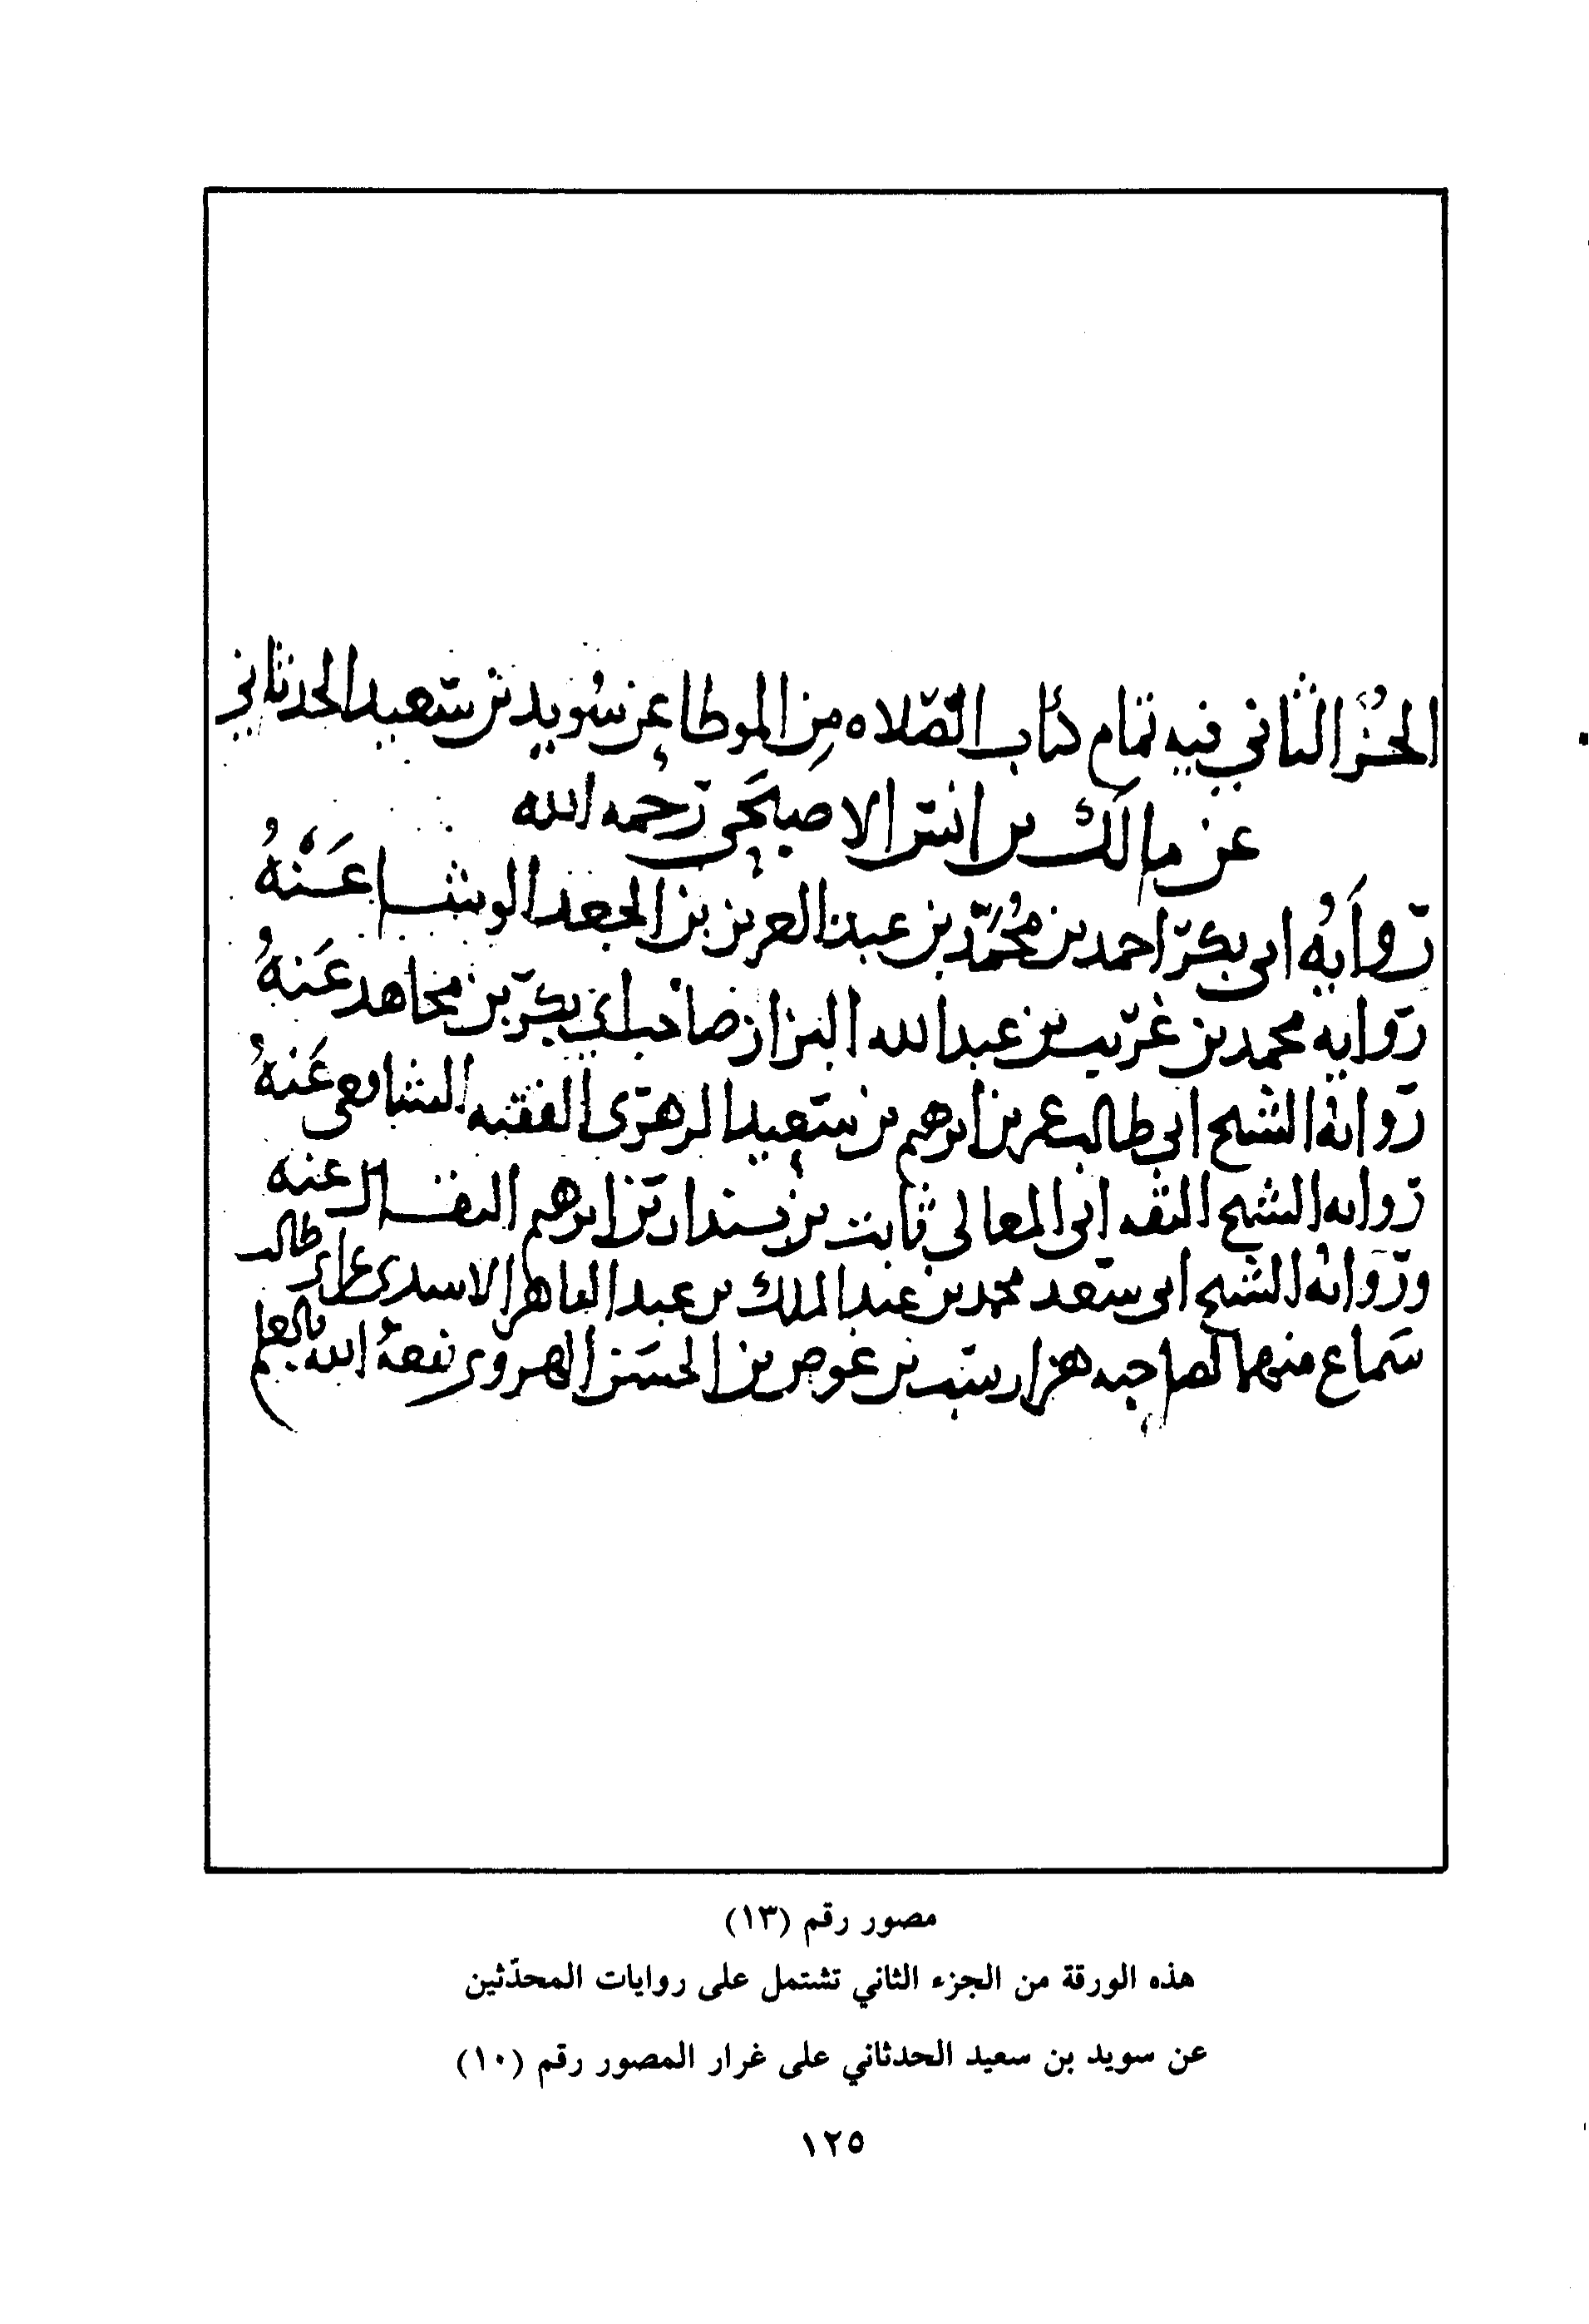 الجُزُ الثاني فيه تمام كتاب الصّلاه مِن الموطا عن سُويد بن سعيد الحدثاني
عن مالك بن انس الاصبَحي رحمه الله
روَايهُ ابي بكر احمد بن مُحمَّد بن عبد العزيز بن الجعد الوشا عَنْهُ
روايه محمد بن غريب بن عبد الله البزاز صاحب ابي بكر بن مجاهد عَنهُ
روايهُ الشيخ ابي طالب عمر بن ابرهيم بن سعيد الزهري الفقيه الشافعي عَنهُ
روايه الشيخ الثقه ابي المعالي ثابت بن بندار بن ابرهيم البقال عنه
وروايهُ الشيخ ابي سعد محمد بن عبد الملك بن عبد القاهر الاسدي عن ابي طالب
سَماع منهما لصاحبه هزارسب بن عوض بن الحسَن الهروي نفعهُ الله بالعلم
مصور رقم (١٣)
هذه الورقة من الجزء الثاني تشتمل على روايات المحدّثين
عن سويد بن سعيد الحدثاني على غرار المصور رقم (١٠)
١٢٥